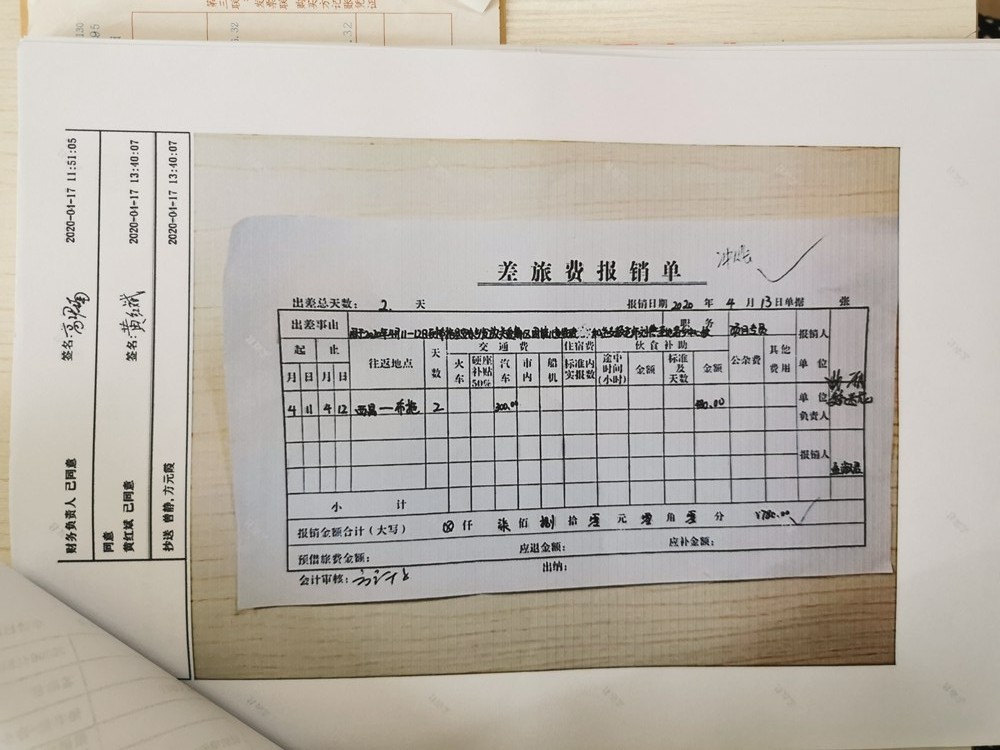 差旅费报销单
冲账
出差总天数: 2 天
报销日期 2020 年 4 月 13 日 单据 张
出差事由
职务 项目专员
报销人
起 止 往返地点 天数 交通费 住宿费 伙食补助 公杂费 其他费用 单位
月 日 月 日 火车 硬座补贴50% 汽车 市内 船机 标准内实报数 途中时间(小时) 金额 标准及天数 金额
4 11 4 12 西昌—布拖 2 300.00 480.00
单位负责人
报销人
小 计
报销金额合计(大写) ⊗ 仟 柒 佰 捌 拾 零 元 零 角 零 分 ¥780.00
预借旅费金额: 应退金额: 应补金额:
会计审核: 出纳:
财务负责人 已同意 签名: 2020-04-17 11:51:05
同意
黄红斌 已同意 签名: 黄红斌 2020-04-17 13:40:07
抄送 曾静,方元霞 2020-04-17 13:40:07